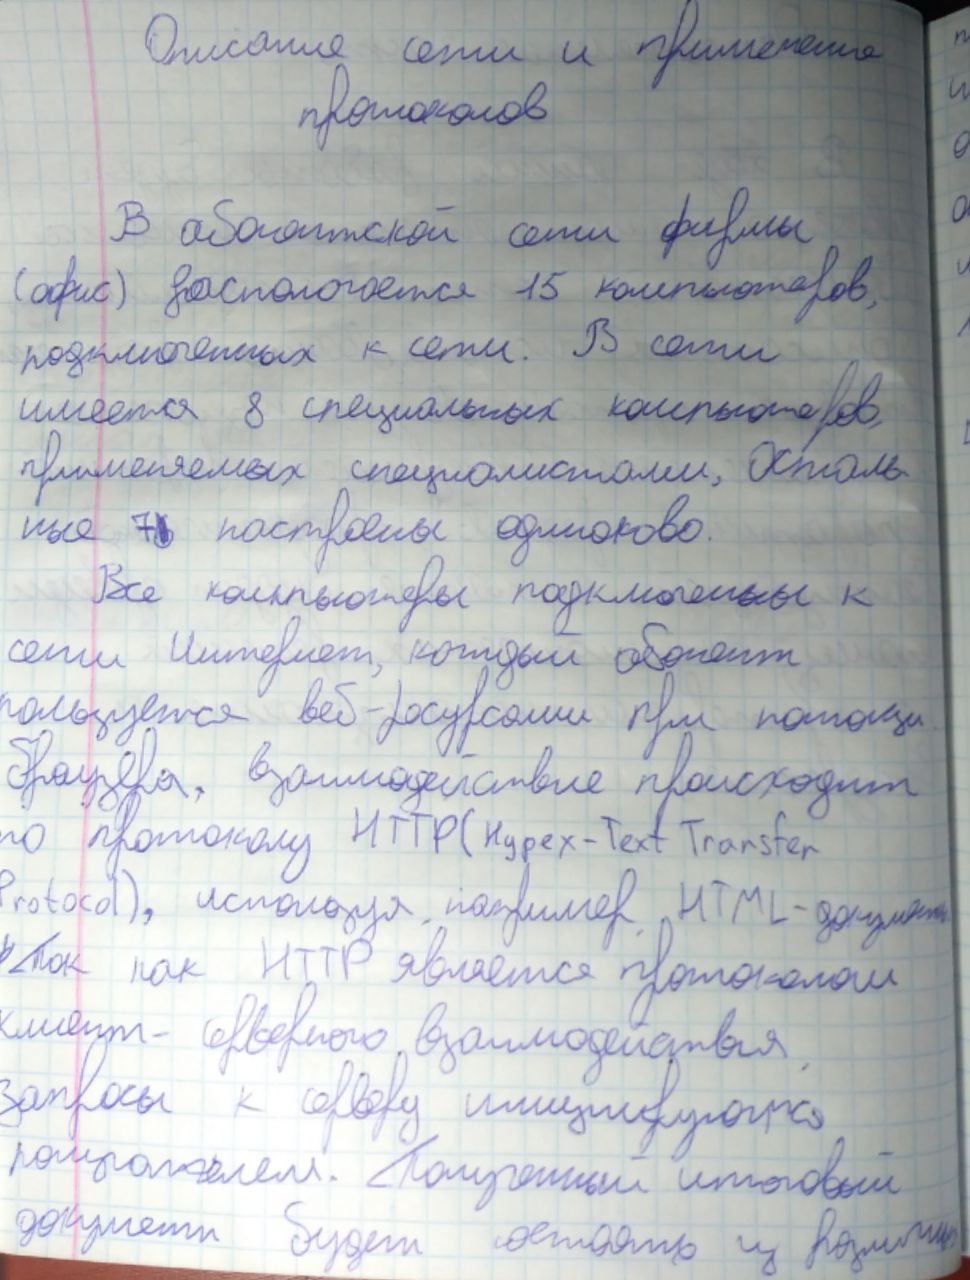 Описание сети и применение
протоколов
В абонентской сети фирмы
(офис) распологается 15 компьютеров,
подключенных к сети. В сети
имеется 8 специальных компьютеров,
применяемых специалистами, Осталь-
ные 7 настроены одинаково.
Все компьютеры подключены к
сети Интернет, каждый абонент
пользуется веб-ресурсами при помощи
браузера, взаимодействие происходит
по протоколу HTTP(Hypex-Text Transfer
Protocol), используя, например, HTML-документы
Так как HTTP является протоколом
клиент-серверного взаимодействия,
запросы к серверу инициируются
получателем. Полученный итоговый
документ будет состоять из различных